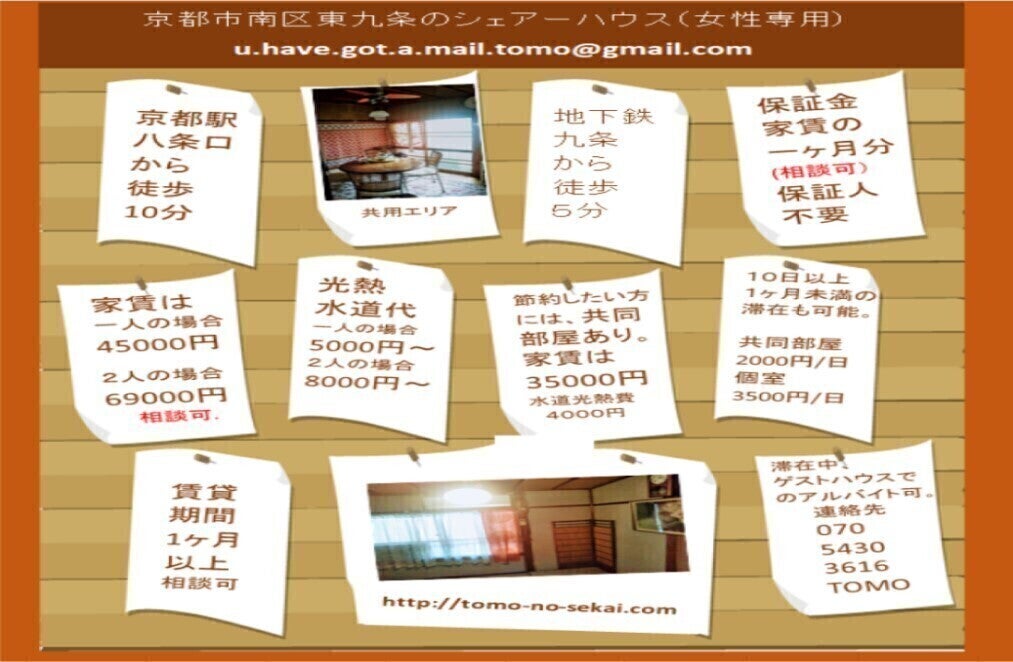 京都市南区東九条のシェアーハウス(女性専用)
u.have.got.a.mail.tomo@gmail.com
京都駅
八条口
から
徒歩
10分
共用エリア
地下鉄
九条
から
徒歩
5分
保証金
家賃の
一ヶ月分
(相談可)
保証人
不要
家賃は
一人の場合
45000円
2人の場合
69000円
相談可.
光熱
水道代
一人の場合
5000円~
2人の場合
8000円~
節約したい方
には、共同
部屋あり。
家賃は
35000円
水道光熱費
4000円
10日以上
1ヶ月未満の
滞在も可能。
共同部屋
2000円/日
個室
3500円/日
賃貸
期間
1ヶ月
以上
相談可
http://tomo-no-sekai.com
滞在中、
ゲストハウスで
のアルバイト可。
連絡先
070
5430
3616
TOMO